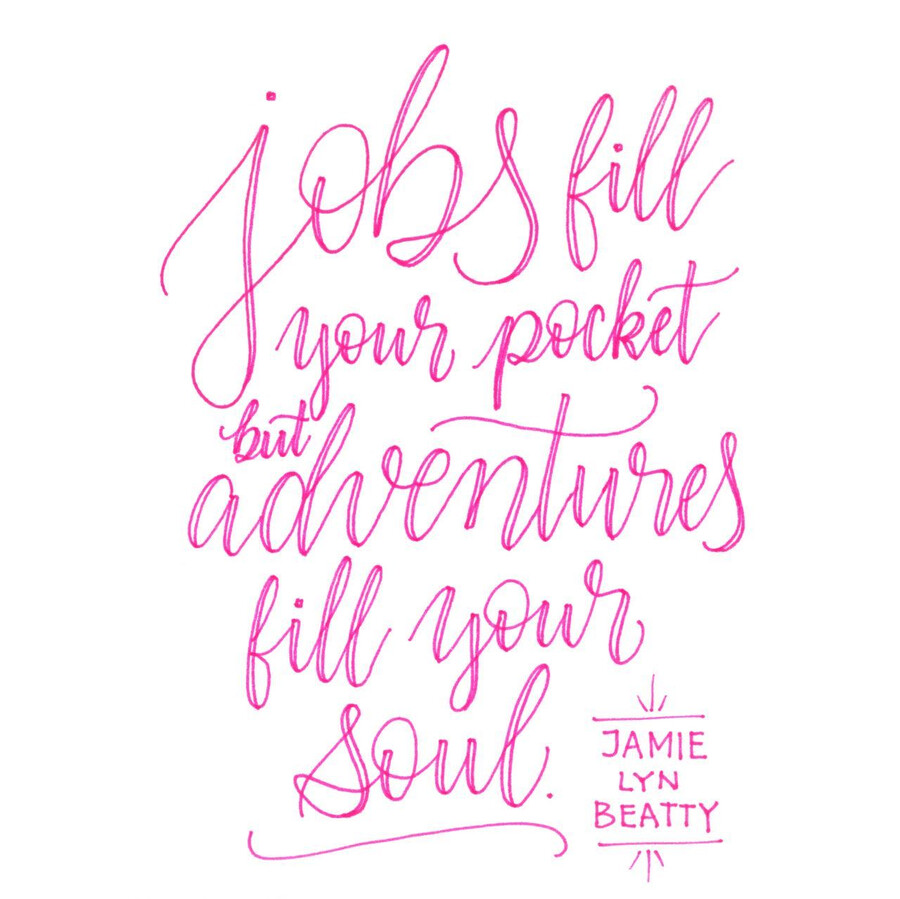 jobs fill
your pocket
but
adventures
fill your
soul.
JAMIE
LYN
BEATTY